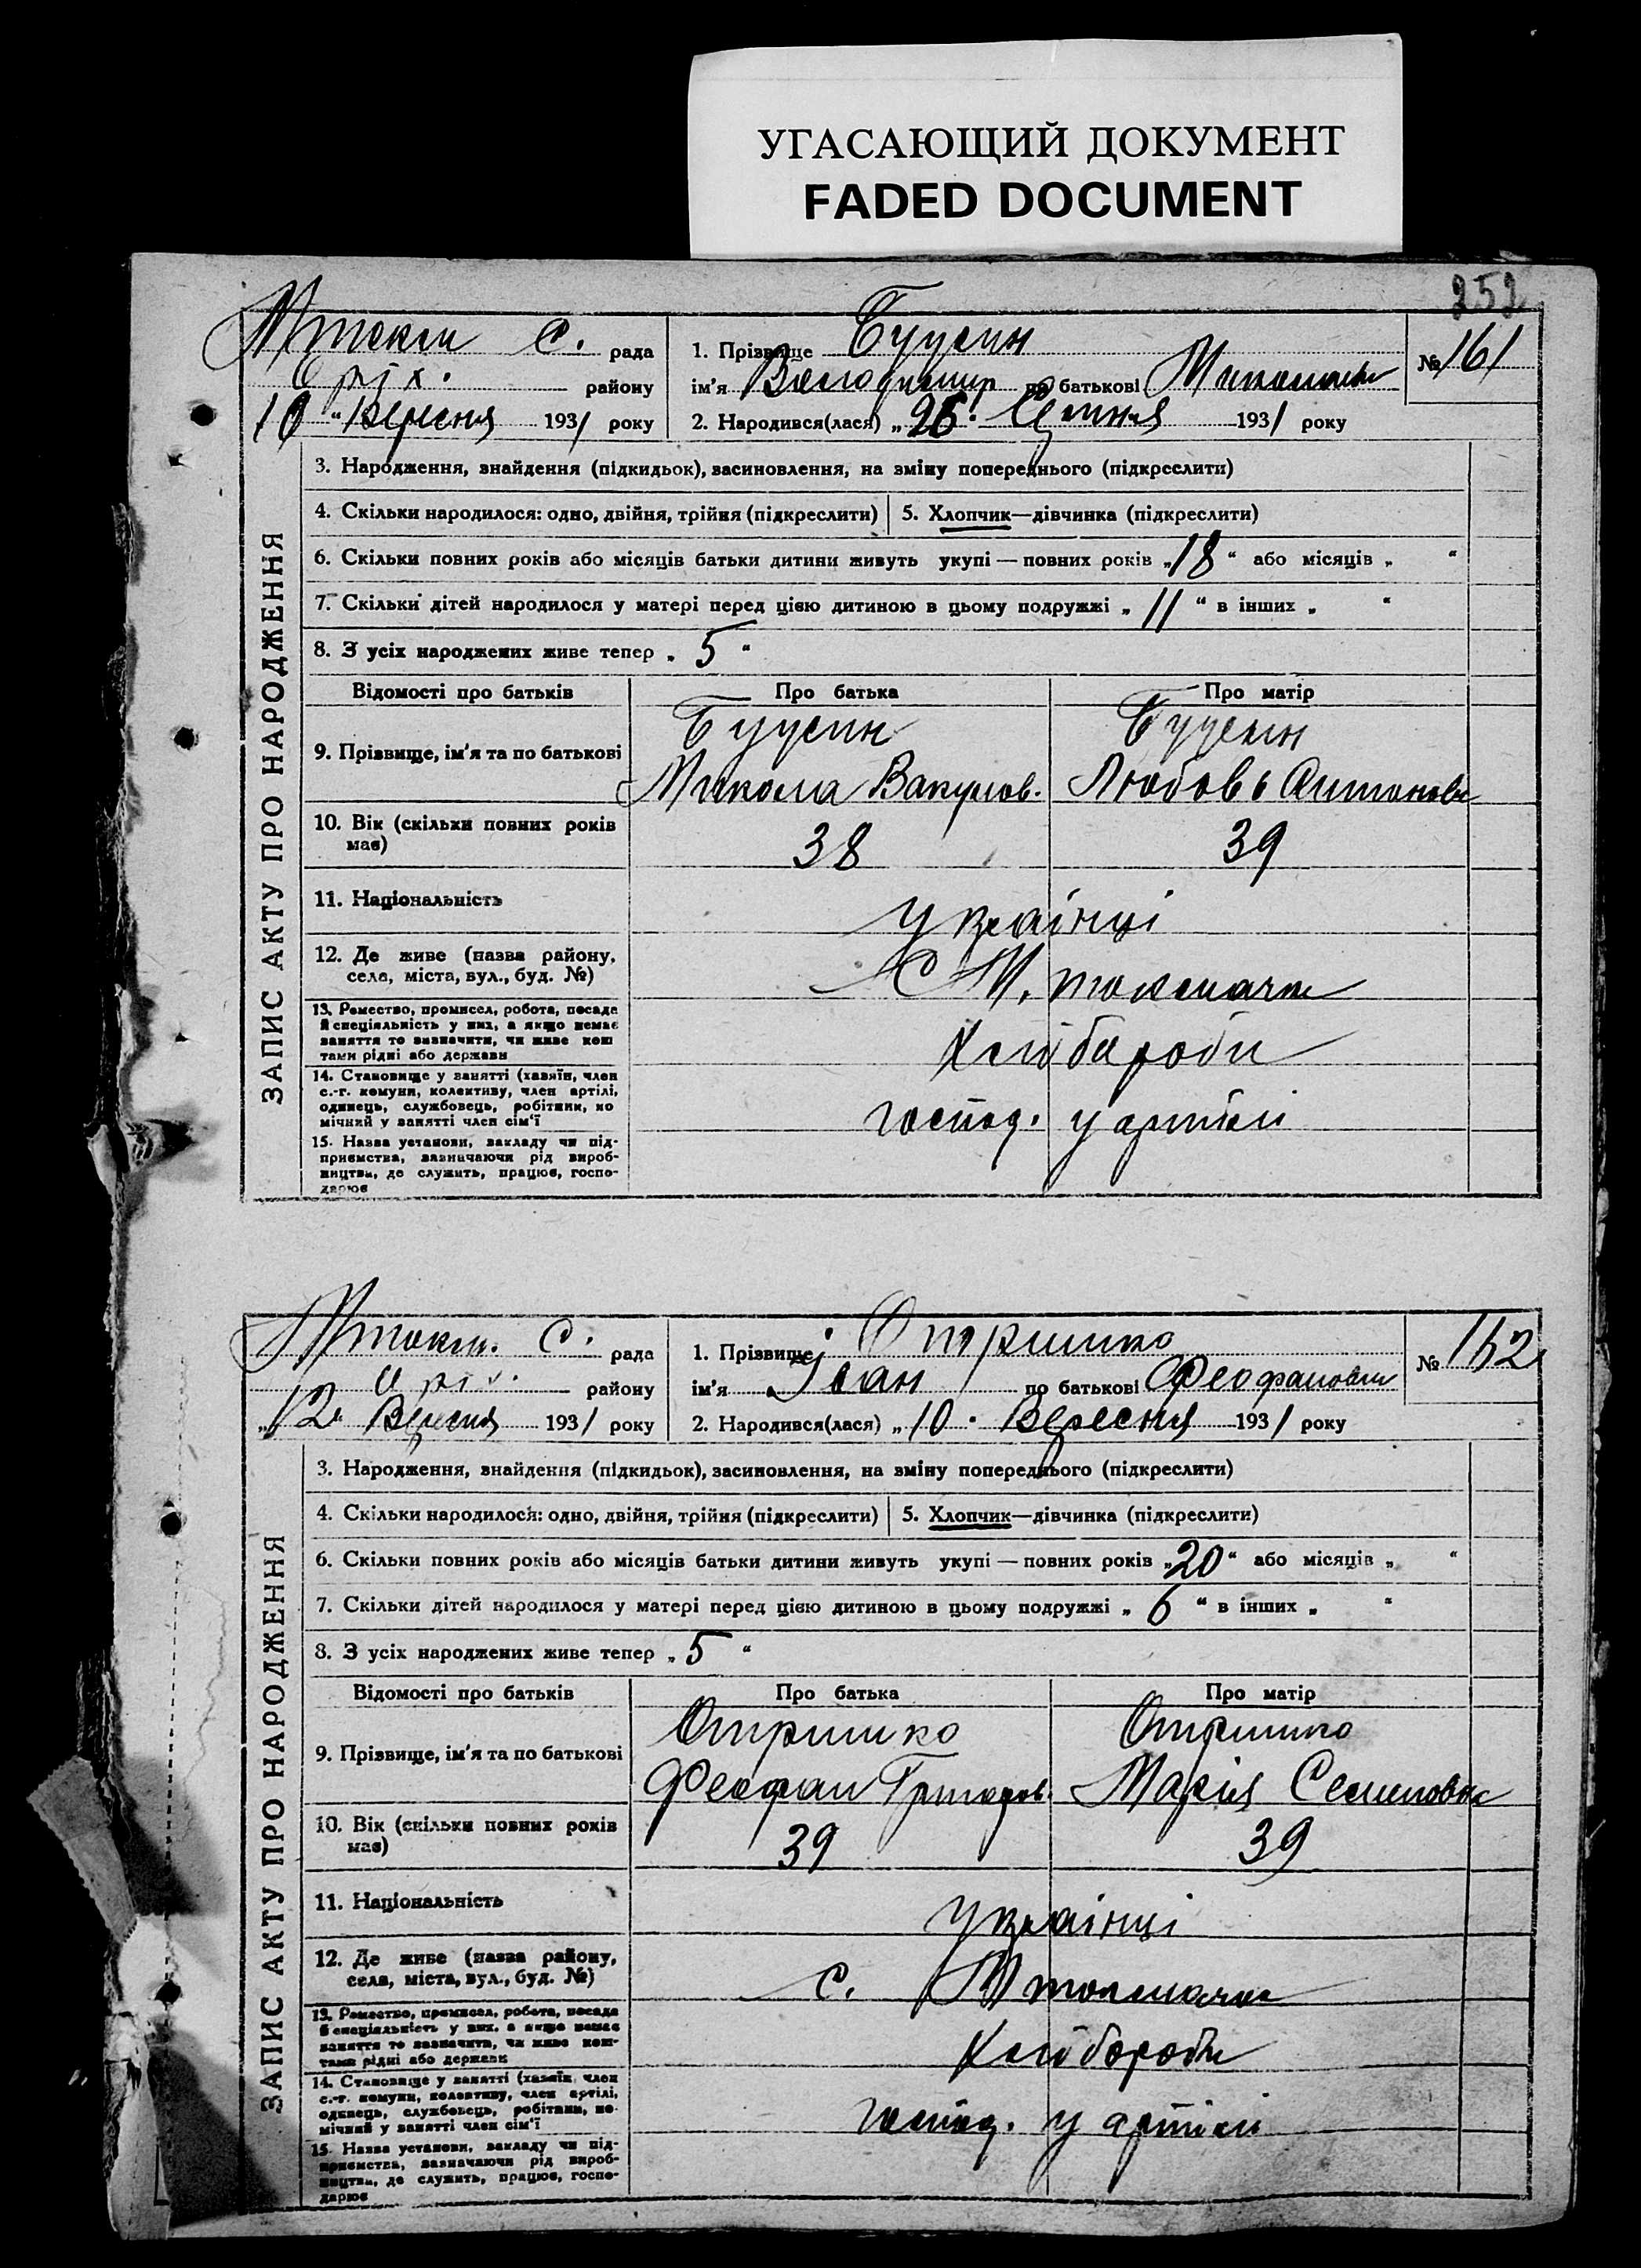 УГАСАЮЩИЙ ДОКУМЕНТ
FADED DOCUMENT
252
Мтокм С. рада
Оріх. району
10 " Вересня 1931 року
1. Прізвище
ім'я Володимир по батькові Миколаев
2. Народився(лася) „ 26 " Серпня 1931 року
№ 161
ЗАПИС АКТУ ПРО НАРОДЖЕННЯ
3. Народження, знайдення (підкидьок), засиновлення, на зміну попереднього (підкреслити)
4. Скільки народилося: одно, двійня, трійня (підкреслити) 5. Хлопчик—дівчинка (підкреслити)
6. Скільки повних років або місяців батьки дитини живуть укупі — повних років „ 18 “ або місяців „ “
7. Скільки дітей народилося у матері перед цією дитиною в цьому подружжі „ 11 “ в інших „ “
8. З усіх народжених живе тепер „ 5 “
Відомості про батьків Про батька Про матір
9. Прізвище, ім'я та по батькові
Микола Вакулов. Любовь Антоновн
10. Вік (скільки повних років має) 38 39
11. Національність Українці
12. Де живе (назва району, села, міста, вул., буд. №) С М. токмачка
13. Ремество, промисел, робота, посада й спеціяльність у них, а якщо немає заняття то визначити, чи живе коштами рідні або держави Хлібороби
14. Становище у занятті (хазяїн, член с.-г. комуни, колективу, член артілі, одинець, службовець, робітник, помічний у занятті член сім'ї господ. у артілі
15. Назва установи, закладу чи підприємства, зазначаючи рід виробництва, де служить, працює, господарює
Мтокм. С. рада
Оріх. району
„ 12 " Вересня 1931 року
1. Прізвище Отришко
ім'я Іван по батькові Феофанович
2. Народився(лася) „ 10 " Вересня 1931 року
№ 162
ЗАПИС АКТУ ПРО НАРОДЖЕННЯ
3. Народження, знайдення (підкидьок), засиновлення, на зміну попереднього (підкреслити)
4. Скільки народилося: одно, двійня, трійня (підкреслити) 5. Хлопчик—дівчинка (підкреслити)
6. Скільки повних років або місяців батьки дитини живуть укупі — повних років „ 20 “ або місяців „ “
7. Скільки дітей народилося у матері перед цією дитиною в цьому подружжі „ 6 “ в інших „ “
8. З усіх народжених живе тепер „ 5 “
Відомості про батьків Про батька Про матір
9. Прізвище, ім'я та по батькові Отришко Отришко
Феофан Григоров. Марія Семеновна
10. Вік (скільки повних років має) 39 39
11. Національність Українці
12. Де живе (назва району, села, міста, вул., буд. №) с. М токмачка
13. Ремество, промисел, робота, посада й спеціяльність у них, а якщо немає заняття то зазначити, чи живе коштами рідні або держави Хлібороби
14. Становище у занятті (хазяїн, член с.-г. комуни, колективу, член артілі, одинець, службовець, робітник, помічний у занятті член сім'ї господ. у артілі
15. Назва установи, закладу чи підприємства, зазначаючи рід виробництва, де служить, працює, господарює